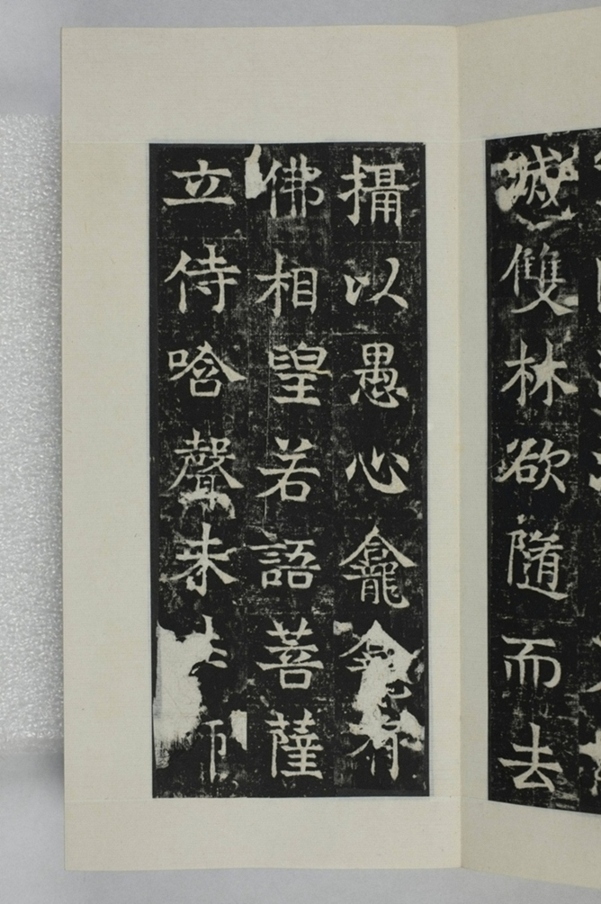 滅雙林欲隨而去
攝以愚心龕龕有
佛相望若語菩薩
立侍唅聲未